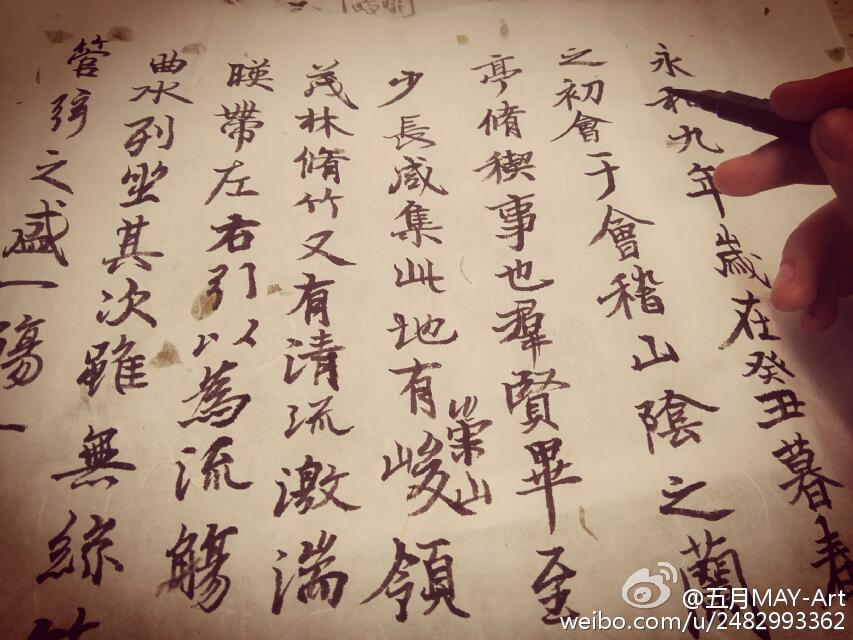 永和九年歲在癸丑暮春
之初會于會稽山陰之蘭
亭脩稧事也羣賢畢至
少長咸集此地有崇山峻領
茂林脩竹又有清流激湍
暎帶左右引以為流觴
曲水列坐其次雖無絲竹
管弦之盛一觴一
@五月MAY-Art
weibo.com/u/2482993362